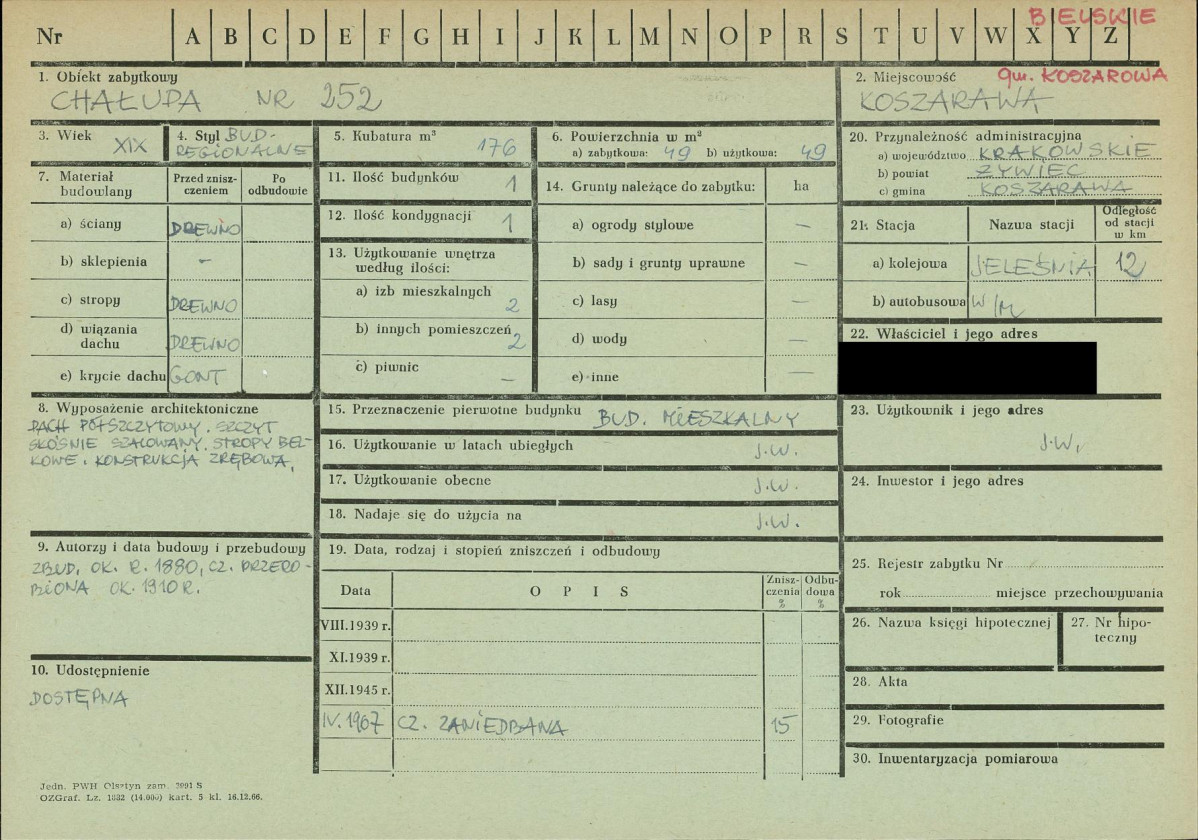 BIELSKIE
Nr A B C D E F G H I J K L M N O P R S T U V W X Y Z
1. Obiekt zabytkowy
CHAŁUPA NR 252
2. Miejscowość gm. KOSZAROWA
KOSZARAWA
3. Wiek XIX
4. Styl BUD-
REGIONALNE
5. Kubatura m³
176
6. Powierzchnia w m²
a) zabytkowa: 49 b) użytkowa: 49
7. Materiał
budowlany
Przed znisz-
czeniem
Po
odbudowie
a) ściany DREWNO
b) sklepienia -
c) stropy DREWNO
d) wiązania
dachu DREWNO
e) krycie dachu GONT
8. Wyposażenie architektoniczne
DACH PÓŁSZCZYTOWY. SZCZYT
SKOŚNIE SZALOWANY. STROPY BEL-
KOWE. KONSTRUKCJA ZRĘBOWA.
9. Autorzy i data budowy i przebudowy
ZBUD. OK. R. 1880, CZ. PRZERO-
BIONA OK. 1910 R.
10. Udostępnienie
DOSTĘPNA
11. Ilość budynków 1
12. Ilość kondygnacji 1
13. Użytkowanie wnętrza
według ilości:
a) izb mieszkalnych
2
b) innych pomieszczeń
2
c) piwnic
—
14. Grunty należące do zabytku: ha
a) ogrody stylowe —
b) sady i grunty uprawne —
c) lasy —
d) wody —
e) inne —
15. Przeznaczenie pierwotne budynku BUD. MIESZKALNY
16. Użytkowanie w latach ubiegłych J.W.
17. Użytkowanie obecne J.W.
18. Nadaje się do użycia na J.W.
19. Data, rodzaj i stopień zniszczeń i odbudowy
Data O P I S
Znisz-
czenia
%
Odbu-
dowa
%
VIII.1939 r.
XI.1939 r.
XII.1945 r.
IV.1967 CZ. ZANIEDBANA 15
20. Przynależność administracyjna
a) województwo KRAKOWSKIE
b) powiat ŻYWIEC
c) gmina KOSZARAWA
21. Stacja Nazwa stacji
Odległość
od stacji
w km
a) kolejowa JELEŚNIA 12
b) autobusowa W/M
22. Właściciel i jego adres
23. Użytkownik i jego adres
J.W.
24. Inwestor i jego adres
25. Rejestr zabytku Nr
rok miejsce przechowywania
26. Nazwa księgi hipotecznej
27. Nr hipo-
teczny
28. Akta
29. Fotografie
30. Inwentaryzacja pomiarowa
Jedn. PWH Olsztyn zam. 2991 S
OZGraf. Lz. 1832 (14.000) kart. 5 kl. 16.12.66.